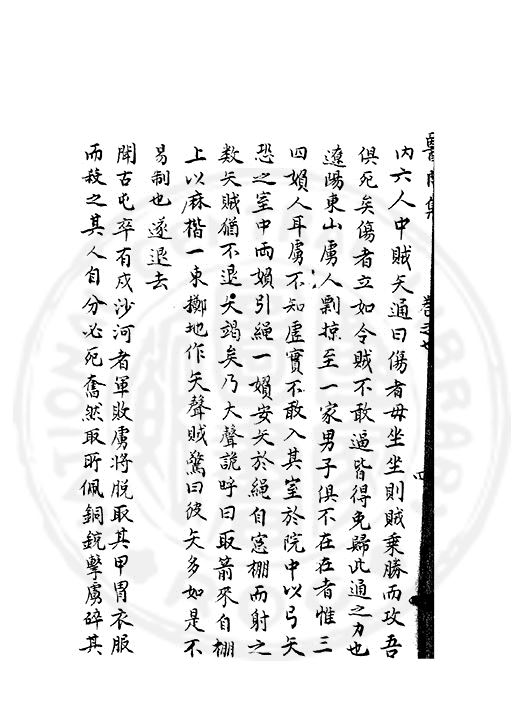 醫閭集 卷之七 四
內六人中賊矢通曰傷者毋坐坐則賊乗勝而攻吾
俱死矣傷者立如令賊不敢逼皆得免歸此通之力也
遼陽東山虜人剽掠至一家男子俱不在在者惟三
四嬪人耳虜不知虛實不敢入其室於院中以弓矢
恐之室中兩嬪引繩一嬪安矢於繩自窓棚而射之
数矢賊猶不退矢竭矣乃大聲詭呼曰取箭來自棚
上以麻楷一束擲地作矢聲賊驚曰彼矢多如是不
易制也遂退去
聞古屯卒有戍沙河者軍敗虜將脫取其甲冑衣服
而殺之其人自分必死奮然取所佩銅銃擊虜碎其